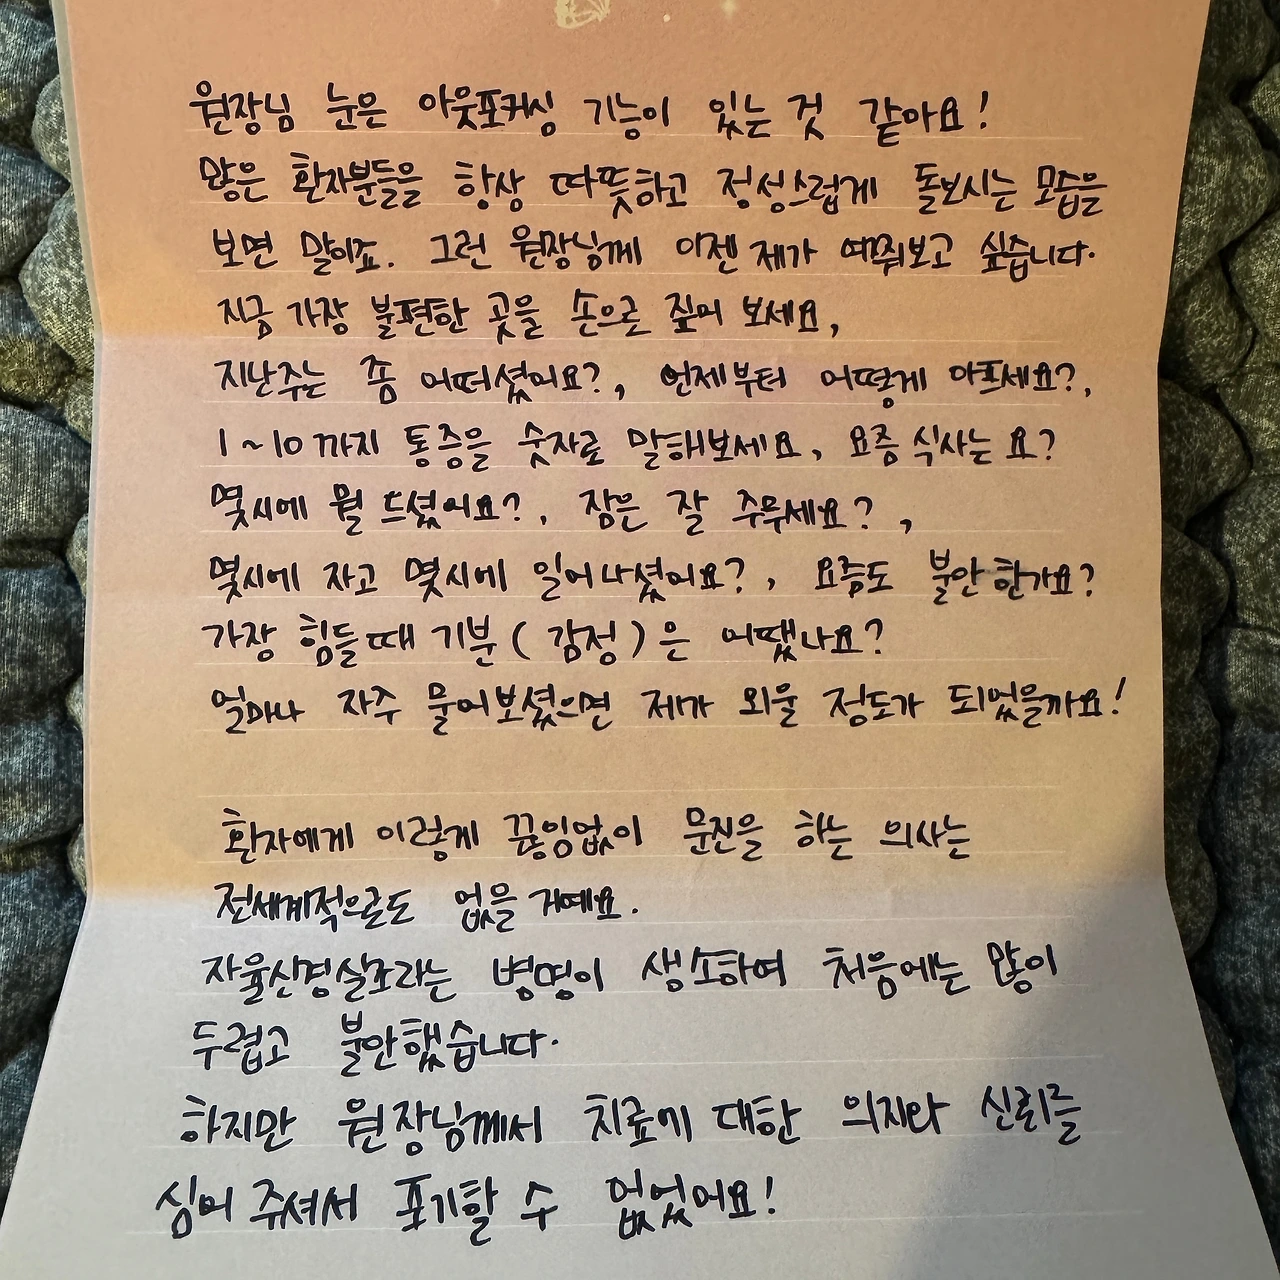 원장님 눈은 아웃포커싱 기능이 있는 것 같아요!
많은 환자분들을 항상 따뜻하고 정성스럽게 돌보시는 모습을
보면 말이죠. 그런 원장님께 이젠 제가 여쭤보고 싶습니다.
지금 가장 불편한 곳을 손으로 짚어 보세요,
지난주는 좀 어떠셨어요?, 언제부터 어떻게 아프세요?,
1~10까지 통증을 숫자로 말해보세요, 요즘 식사는 요?
몇시에 뭘 드셨어요?, 잠은 잘 주무세요?,
몇시에 자고 몇시에 일어나셨어요?, 요즘도 불안한가요?
가장 힘들때 기분(감정)은 어땠나요?
얼마나 자주 물어보셨으면 제가 외울 정도가 되었을까요!
환자에게 이렇게 끊임없이 문진을 하는 의사는
전세계적으로도 없을 거예요.
자율신경실조라는 병명이 생소하여 처음에는 많이
두렵고 불안했습니다.
하지만 원장님께서 치료에 대한 의지와 신뢰를
심어 주셔서 포기할 수 없었어요!